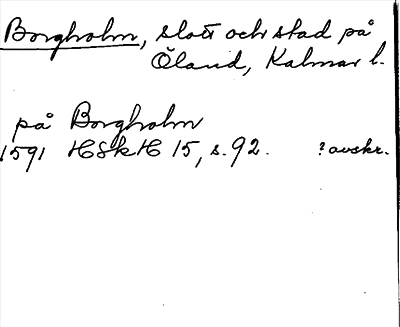 Borgholm, slott och stad på
Öland, Kalmar l.
på Borgholm
1591 HSkH 15, s. 92. ? avskr.